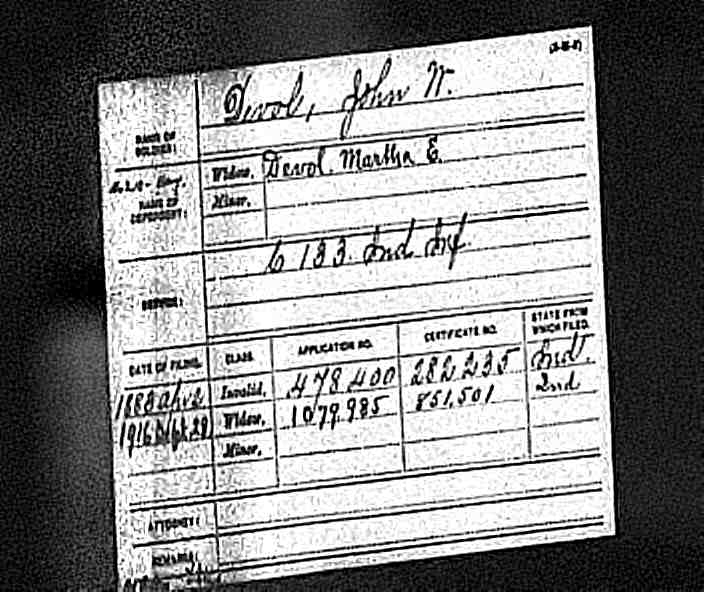 (3-H-7)
Devol, John W.
NAME OF SOLDIER:
NAME OF DEPENDENT:
Widow, Devol Martha E.
Minor,
SERVICE: C 133 Ind Inf
DATE OF FILING. CLASS. APPLICATION NO. CERTIFICATE NO. STATE FROM WHICH FILED.
1883 Apr 2 Invalid, 478,400 282,235 Ind.
1916 Sept 29 Widow, 1079,985 851,501 Ind
Minor,
ATTORNEY:
REMARKS: